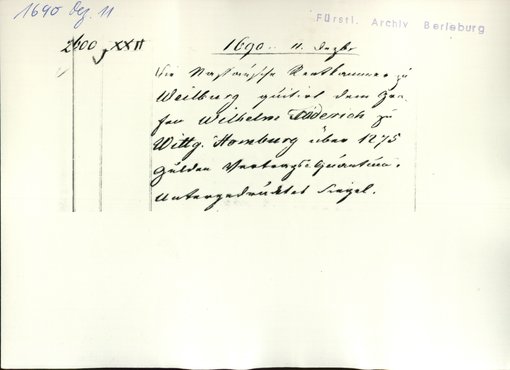 1690 Dez. 11
Fürstl. Archiv Berleburg
2600 XXII
1690. 11. Dezbr
Die Nassauische Rentkammer zu
Weilburg quitirt dem Gra-
fen Wilhelm Friederich zu
Wittg. Homburg über 1275
Gulden Vertrags Quantum.
Untergedrücktes Siegel.